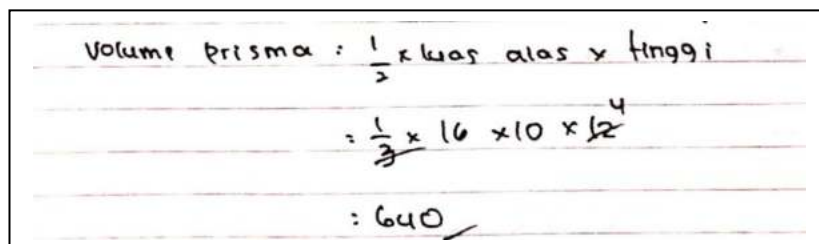 Volume Prisma : 1/2 x luas alas x tinggi
: 1/3 x 16 x 10 x 12 4
: 640